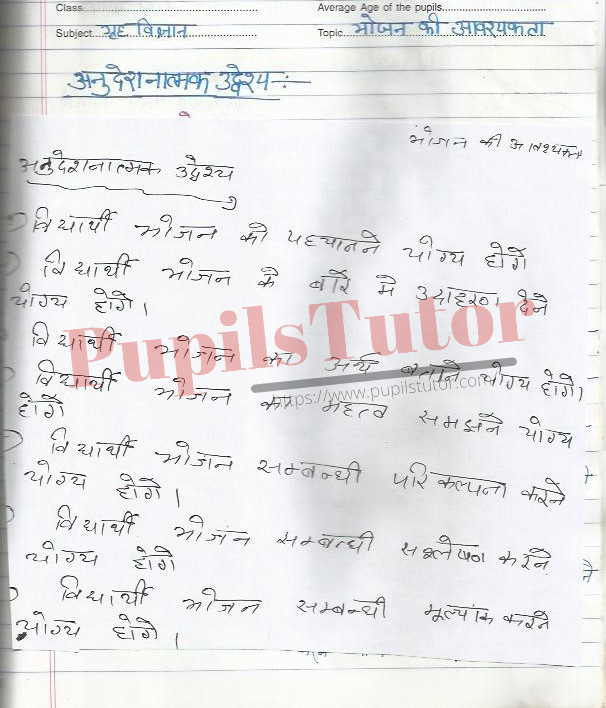 Class
Average Age of the pupils
Subject गृह विज्ञान
Topic भोजन की आवश्यकता
अनुदेशनात्मक उद्देश्य :-
भोजन की आवश्यकता
अनुदेशनात्मक उद्देश्य
विद्यार्थी भोजन को पहचानने योग्य होगें
विद्यार्थी भोजन के बारे मे उदाहरण देने
योग्य होगें।
विद्यार्थी भोजन का अर्थ बताने योग्य होगें।
विद्यार्थी भोजन का महत्व समझने योग्य
होगें
विद्यार्थी भोजन सम्बन्धी परिकल्पना करने
योग्य होगें।
विद्यार्थी भोजन सम्बन्धी सश्लेषण करने
योग्य होगें
विद्यार्थी भोजन सम्बन्धी मूल्यांक करने
योग्य होगें।
PupilsTutor
https://www.pupilstutor.com